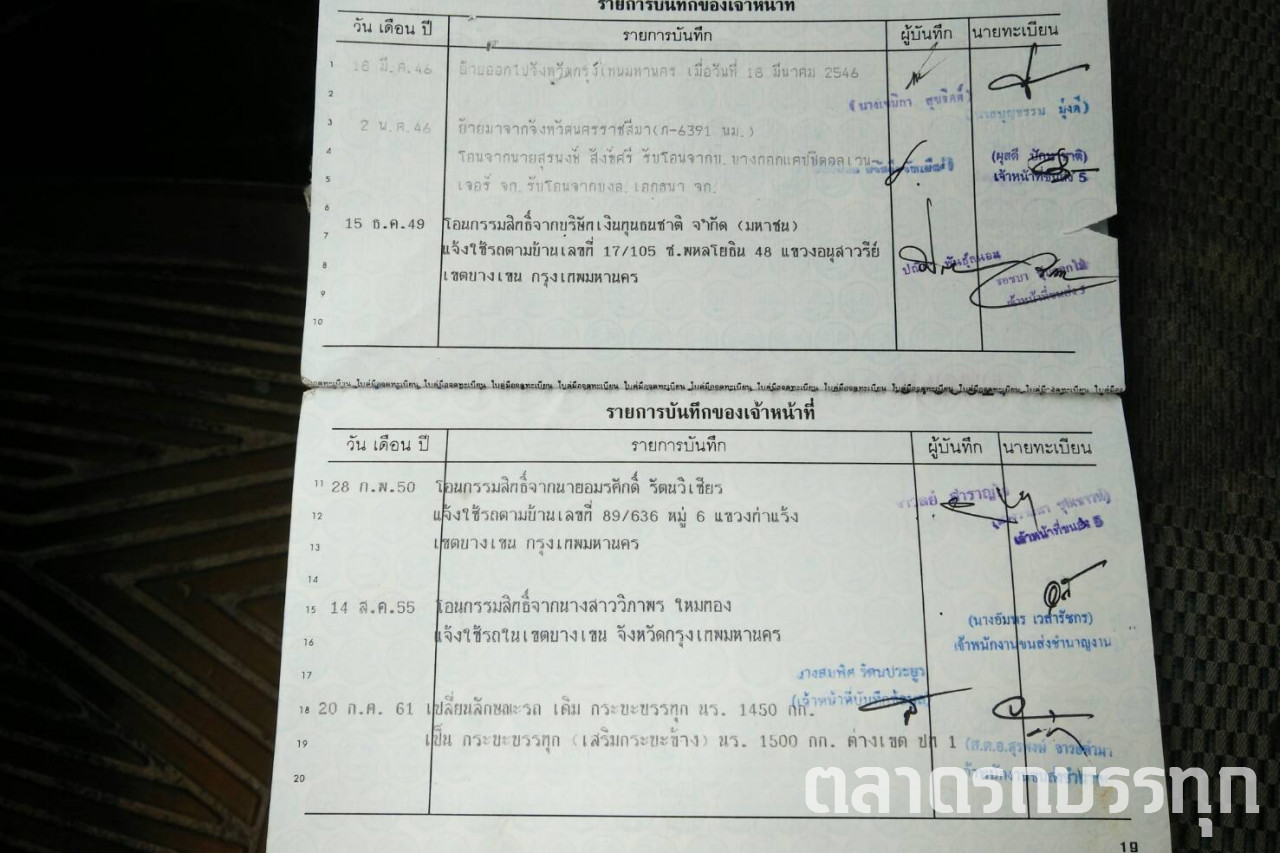 รายการบันทึกของเจ้าหน้าที่
วัน เดือน ปี รายการบันทึก ผู้บันทึก นายทะเบียน
1 18 มี.ค.46 ย้ายออกไปจังหวัดกรุงเทพมหานคร เมื่อวันที่ 18 มีนาคม 2546
2
3 2 พ.ค.46 ย้ายมาจากจังหวัดนครราชสีมา(ภ-6391 นม.)
4 โอนจากนายสุรพงษ์ สิงข์ศรี รับโอนจากบ. บางกอกแคปปิตอลเวน-
5 เจอร์ จก. รับโอนจากบงล. เอกธนา จก.
(ผุสดี
เจ้าหน้าที่ขนส่ง 5
6
15 ธ.ค.49 โอนกรรมสิทธิ์จากบริษัทเงินทุนธนชาติ จำกัด (มหาชน)
7 แจ้งใช้รถตามบ้านเลขที่ 17/105 ซ.พหลโยธิน 48 แขวงอนุสาวรีย์
8 เขตบางเขน กรุงเทพมหานคร
9 เจ้าหน้าที่ขนส่ง 5
10
ใบคู่มือจดทะเบียน ใบคู่มือจดทะเบียน ใบคู่มือจดทะเบียน ใบคู่มือจดทะเบียน
รายการบันทึกของเจ้าหน้าที่
วัน เดือน ปี รายการบันทึก ผู้บันทึก นายทะเบียน
11 28 ก.พ.50 โอนกรรมสิทธิ์จากนายอมรศักดิ์ รัตนวิเชียร
12 แจ้งใช้รถตามบ้านเลขที่ 89/636 หมู่ 6 แขวงท่าแร้ง
เจ้าหน้าที่ขนส่ง 5
13 เขตบางเขน กรุงเทพมหานคร
14
15 14 ส.ค.55 โอนกรรมสิทธิ์จากนางสาววิภาพร ใหมทอง
(นางอัมพร เวสารัชกร)
16 แจ้งใช้รถในเขตบางเขน จังหวัดกรุงเทพมหานคร
เจ้าพนักงานขนส่งชำนาญงาน
17 นางสมพิศ รัตนประยูร
(เจ้าหน้าที่บันทึกข้อมูล)
18 20 ก.ค. 61 เปลี่ยนลักษณะรถ เดิม กระบะบรรทุก นร. 1450 กก.
19 เป็น กระบะบรรทุก (เสริมกระบะข้าง) นร. 1500 กก. ต่างเขต ปท 1
20
19
ตลาดรถบรรทุก